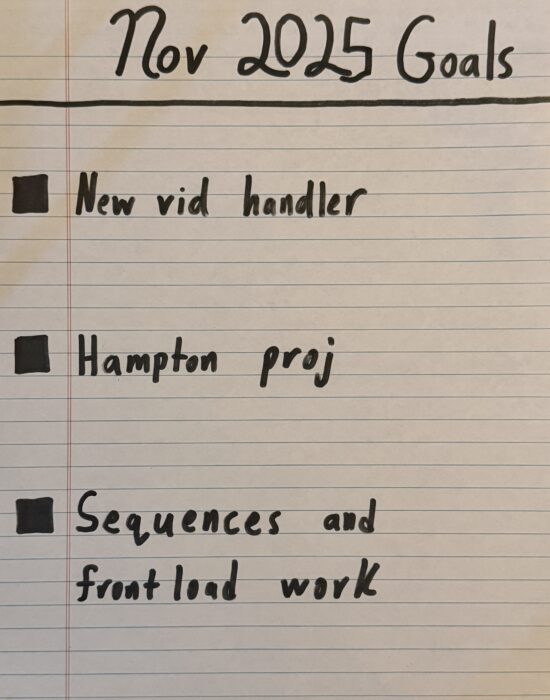 Nov 2025 Goals
New vid handler
Hampton proj
Sequences and
frontload work